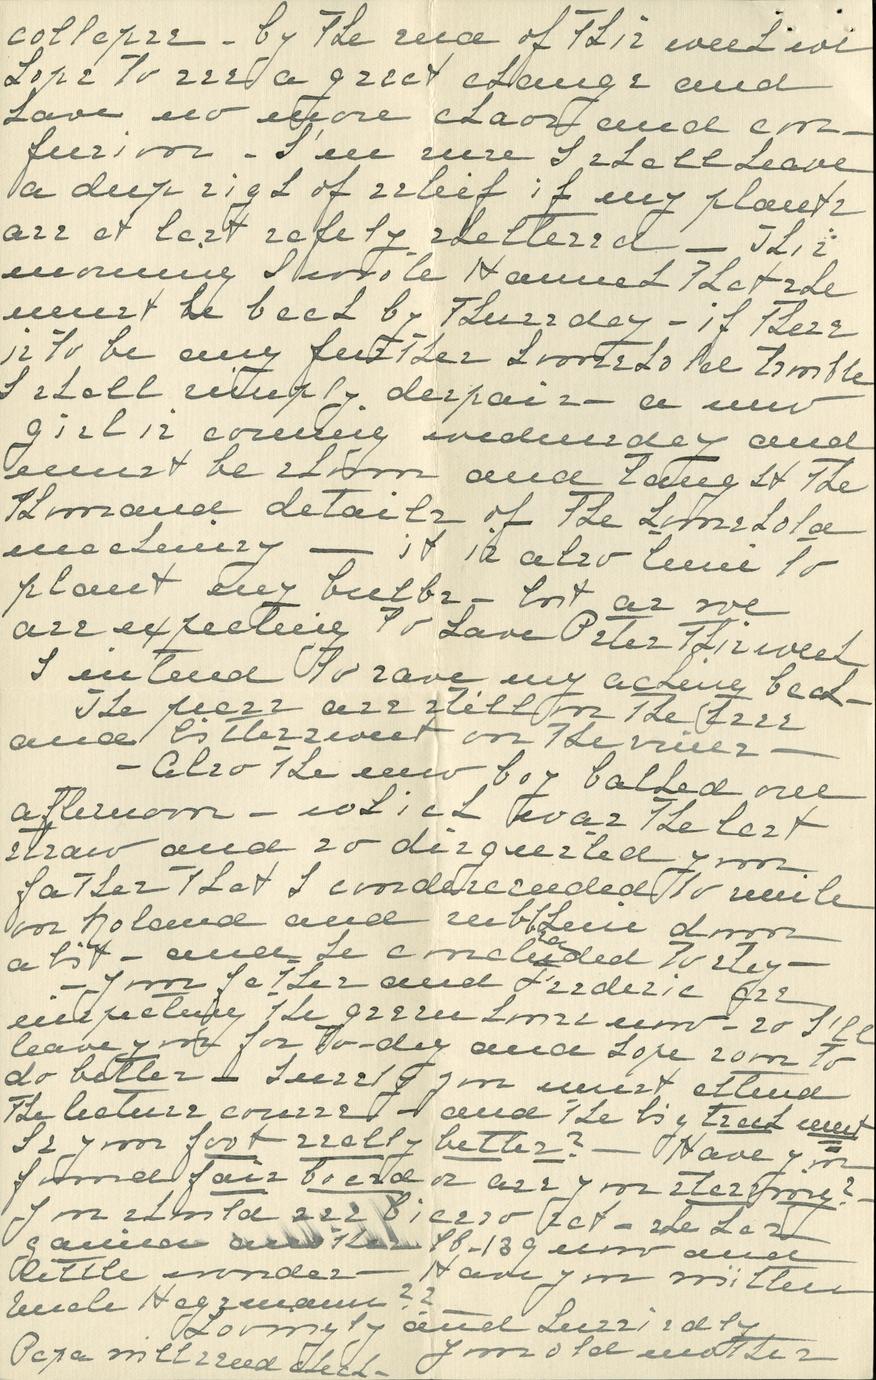 collapse - by the end of this week we
hope to see a great change and
have no more chaos and con-
fusion - I'm sure I shall heave
a deep sigh of relief if my plants
are at last safely sheltered — This
morning I wrote Hannah that she
must be back by Thursday - if there
is to be any further household trouble
I shall simply despair - a new
girl is coming wednesday and
must be shown and taught the
thousand details of the household
machinery — it is also time to
plant my bulbs - but as we
are expecting to have Peter this week
I intend to save my aching back -
The pears are still on the tree
and bittersweet on the vines —
- Also the new boy balked one
afternoon - which was the last
straw and so disgusted your
father that I condescended to smile
on Roland and soothe him down
a bit - and he concluded to stay -
- your father and Frederic are
inspecting the green house now - so I'll
leave you for to-day and hope soon to
do better - Surely you must attend
the lecture course - and the big track meet
Is your foot really better? — Have you
found fair board or are you starving? -
You should see Bicasso cat - she has
gained another lb - 13 9 now and
little wonder — Have you written
Uncle Hagemann ??
Lovingly and hurriedly
Papa will send check - your old mother